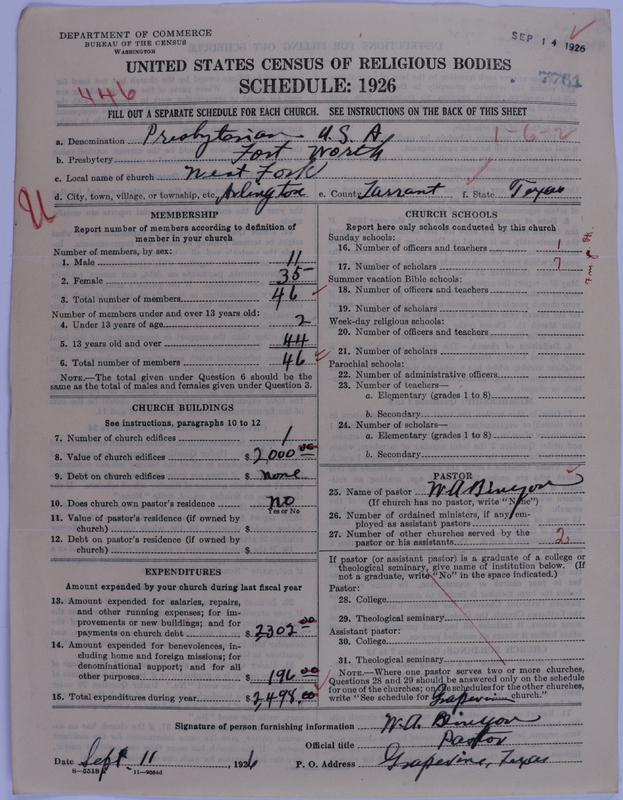 DEPARTMENT OF COMMERCE
BUREAU OF THE CENSUS
WASHINGTON
SEP 14 1926
UNITED STATES CENSUS OF RELIGIOUS BODIES
7761
446
SCHEDULE: 1926
FILL OUT A SEPARATE SCHEDULE FOR EACH CHURCH. SEE INSTRUCTIONS ON THE BACK OF THIS SHEET
1-6-2
a. Denomination Presbyterian U.S.A
b. Presbytery Fort Worth
c. Local name of church West Fork
d. City, town, village, or township, etc. Arlington e. County Tarrant f. State Texas
MEMBERSHIP
Report number of members according to definition of
member in your church
Number of members, by sex:
1. Male 11
2. Female 35
3. Total number of members 46
Number of members under and over 13 years old:
4. Under 13 years of age 2
5. 13 years old and over 44
6. Total number of members 46
NOTE.—The total given under Question 6 should be
same as the total of males and females given under Question 3.
CHURCH BUILDINGS
See instructions, paragraphs 10 to 12
7. Number of church edifices 1
8. Value of church edifices $ 2,000.00
9. Debt on church edifices $ none
10. Does church own pastor's residence no
Yes or No
11. Value of pastor's residence (if owned by
church) $
12. Debt on pastor's residence (if owned by
church) $
EXPENDITURES
Amount expended by your church during last fiscal year
13. Amount expended for salaries, repairs,
and other running expenses; for im-
provements or new buildings; and for
payments on church debt $ 2302.00
14. Amount expended for benevolences, in-
cluding home and foreign missions; for
denominational support; and for all
other purposes $ 196.00
15. Total expenditures during year $ 2,498.00
CHURCH SCHOOLS
Report here only schools conducted by this church
Sunday schools:
16. Number of officers and teachers 1
17. Number of scholars 7
Summer vacation Bible schools:
18. Number of officers and teachers
19. Number of scholars
Week-day religious schools:
20. Number of officers and teachers
21. Number of scholars
Parochial schools:
22. Number of administrative officers
23. Number of teachers—
a. Elementary (grades 1 to 8)
b. Secondary
24. Number of scholars—
a. Elementary (grades 1 to 8)
b. Secondary
PASTOR
25. Name of pastor W A Binyon
(If church has no pastor, write "None")
26. Number of ordained ministers, if any, em-
ployed as assistant pastors
27. Number of other churches served by the
pastor or his assistants 2
If pastor (or assistant pastor) is a graduate of a college or
theological seminary, give name of institution below. (If
not a graduate, write "No" in the space indicated.)
Pastor:
28. College
29. Theological seminary
Assistant pastor:
30. College
31. Theological seminary
NOTE.—Where one pastor serves two or more churches,
Questions 28 and 29 should be answered only on the schedule
for one of the churches; on the schedules for the other churches,
write "See schedule for Grapevine church."
Signature of person furnishing information W.A. Binyon
Official title Pastor
Date Sept 11, 1926 P. O. Address Grapevine, Texas
8—5518 11—9084d